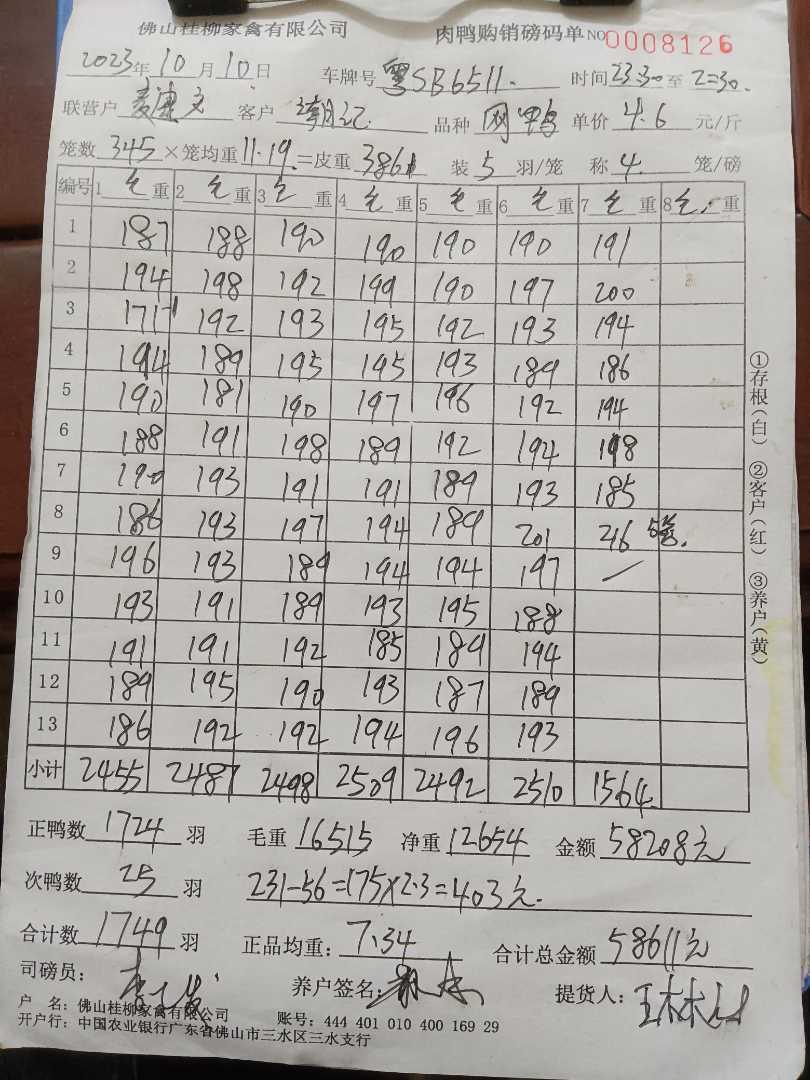 佛山桂柳家禽有限公司 肉鸭购销磅码单 NO 0008126
2023年 10 月 10 日 车牌号 粤SB6511. 时间 23:30 至 2:30.
联营户 客户 品种 网鸭 单价 4.6 元/斤
笼数 345 ×笼均重 11.19 =皮重 3861 装 5 羽/笼 称 4 笼/磅
编号 1 毛 重 2 毛 重 3 毛 重 4 毛 重 5 毛 重 6 毛 重 7 毛 重 8 毛 重
1 187 188 190 190 190 190 191
2 194 198 192 199 190 197 200
3 171-1 192 193 195 192 193 194
4 194 189 195 195 193 189 186
5 190 181 190 197 196 192 194
6 188 191 198 189 192 194 198
7 190 193 191 191 189 193 185
8 186 193 197 194 189 201 216 5笼.
9 196 193 189 194 194 197 /
10 193 191 189 193 195 188
11 191 191 192 185 189 194
12 189 195 190 193 187 189
13 186 192 192 194 196 193
小计 2455 2487 2498 2509 2492 2510 1564
正鸭数 1724 羽 毛重 16515 净重 12654 金额 58208元
次鸭数 25 羽 231-56=175×2.3=403元.
合计数 1749 羽 正品均重: 7.34 合计总金额 58611元
司磅员: 养户签名: 提货人:
户 名: 佛山桂柳家禽有限公司 账号: 444 401 010 400 169 29
开户行: 中国农业银行广东省佛山市三水区三水支行
①存根(白) ②客户(红) ③养户(黄)